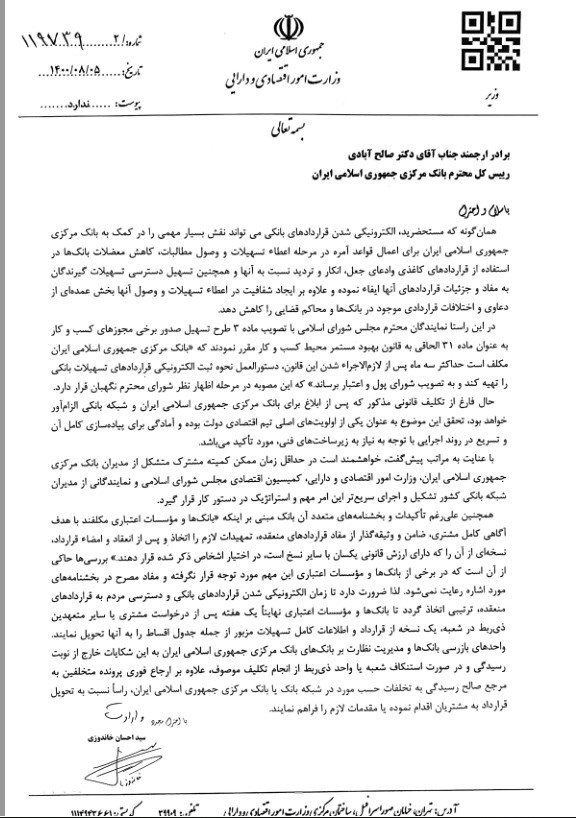 جمهوری اسلامی ایران
وزارت امور اقتصادی و دارایی
وزیر
شماره: ۲/۱۱۹۷۳۹
تاریخ: ۱۴۰۰/۰۸/۰۵
پیوست: ندارد
بسمه تعالی
برادر ارجمند جناب آقای دکتر صالح آبادی
رییس کل محترم بانک مرکزی جمهوری اسلامی ایران
با سلام و احترام
همان‌گونه که مستحضرید، الکترونیکی شدن قراردادهای بانکی می تواند نقش بسیار مهمی را در کمک به بانک مرکزی
جمهوری اسلامی ایران برای اعمال قواعد آمره در مرحله اعطاء تسهیلات و وصول مطالبات، کاهش معضلات بانک‌ها در
استفاده از قراردادهای کاغذی وادعای جعل، انکار و تردید نسبت به آنها و همچنین تسهیل دسترسی تسهیلات گیرندگان
به مفاد و جزئیات قراردادهای آنها ایفاء نموده و علاوه بر ایجاد شفافیت در اعطاء تسهیلات و وصول آنها بخش عمده‌ای از
دعاوی و اختلافات قراردادی موجود در بانک‌ها و محاکم قضایی را کاهش دهد.
در این راستا نمایندگان محترم مجلس شورای اسلامی با تصویب ماده ۳ طرح تسهیل صدور برخی مجوزهای کسب و کار
به عنوان ماده ۳۱ الحاقی به قانون بهبود مستمر محیط کسب و کار مقرر نمودند که «بانک مرکزی جمهوری اسلامی ایران
مکلف است حداکثر سه ماه پس از لازم‌الاجراء شدن این قانون، دستورالعمل نحوه ثبت الکترونیکی قراردادهای تسهیلات بانکی
را تهیه کند و به تصویب شورای پول و اعتبار برساند.» که این مصوبه در مرحله اظهار نظر شورای محترم نگهبان قرار دارد.
حال فارغ از تکلیف قانونی مذکور که پس از ابلاغ برای بانک مرکزی جمهوری اسلامی ایران و شبکه بانکی الزام‌آور
خواهد بود، تحقق این موضوع به عنوان یکی از اولویت‌های اصلی تیم اقتصادی دولت بوده و آمادگی برای پیاده‌سازی کامل آن
و تسریع در روند اجرایی با توجه به نیاز به زیرساخت‌های فنی، مورد تأکید می‌باشد.
با عنایت به مراتب پیش‌گفت، خواهشمند است در حداقل زمان ممکن کمیته مشترک متشکل از مدیران بانک مرکزی
جمهوری اسلامی ایران، وزارت امور اقتصادی و دارایی، کمیسیون اقتصادی مجلس شورای اسلامی و نمایندگانی از مدیران
شبکه بانکی کشور تشکیل و اجرای سریع‌تر این امر مهم و استراتژیک در دستور کار قرار گیرد.
همچنین علی‌رغم تأکیدات و بخشنامه‌های متعدد آن بانک مبنی بر اینکه «بانک‌ها و مؤسسات اعتباری مکلفند با هدف
آگاهی کامل مشتری، ضامن و وثیقه‌گذار از مفاد قراردادهای منعقده، تمهیدات لازم را اتخاذ و پس از انعقاد و امضاء قرارداد،
نسخه‌ای از آن را که دارای ارزش قانونی یکسان با سایر نسخ است، در اختیار اشخاص ذکر شده قرار دهند.» بررسی‌ها حاکی
از آن است که در برخی از بانک‌ها و مؤسسات اعتباری این مهم مورد توجه قرار نگرفته و مفاد مصرح در بخشنامه‌های
مورد اشاره رعایت نمی‌شود. لذا ضرورت دارد تا زمان الکترونیکی شدن قراردادهای بانکی و دسترسی مردم به قراردادهای
منعقده، ترتیبی اتخاذ گردد تا بانک‌ها و مؤسسات اعتباری نهایتاً یک هفته پس از درخواست مشتری یا سایر متعهدین
ذی‌ربط در شعبه، یک نسخه از قرارداد و اطلاعات کامل تسهیلات مزبور از جمله جدول اقساط را به آنها تحویل نمایند.
واحدهای بازرسی بانک‌ها و مدیریت نظارت بر بانک‌های بانک مرکزی جمهوری اسلامی ایران به این شکایات خارج از نوبت
رسیدگی و در صورت استنکاف شعبه یا واحد ذی‌ربط از انجام تکلیف موصوف، علاوه بر ارجاع فوری پرونده متخلفین به
مرجع صالح رسیدگی به تخلفات حسب مورد در شبکه بانک یا بانک مرکزی جمهوری اسلامی ایران، راساً نسبت به تحویل
قرارداد به مشتریان اقدام نموده یا مقدمات لازم را فراهم نمایند.
با احترام مجدد و ارادت
سید احسان خاندوزی
آدرس: تهران، خیابان صوراسرافیل، ساختمان مرکزی وزارت امور اقتصادی و دارایی تلفن: ۳۹۹۰۹ کد پستی: ۱۱۱۴۹۴۳۶۶۱